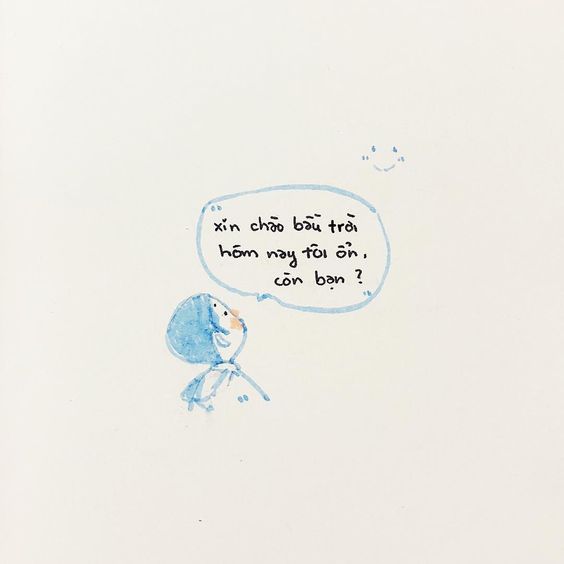 xin chào bầu trời
hôm nay tôi ổn,
còn bạn ?